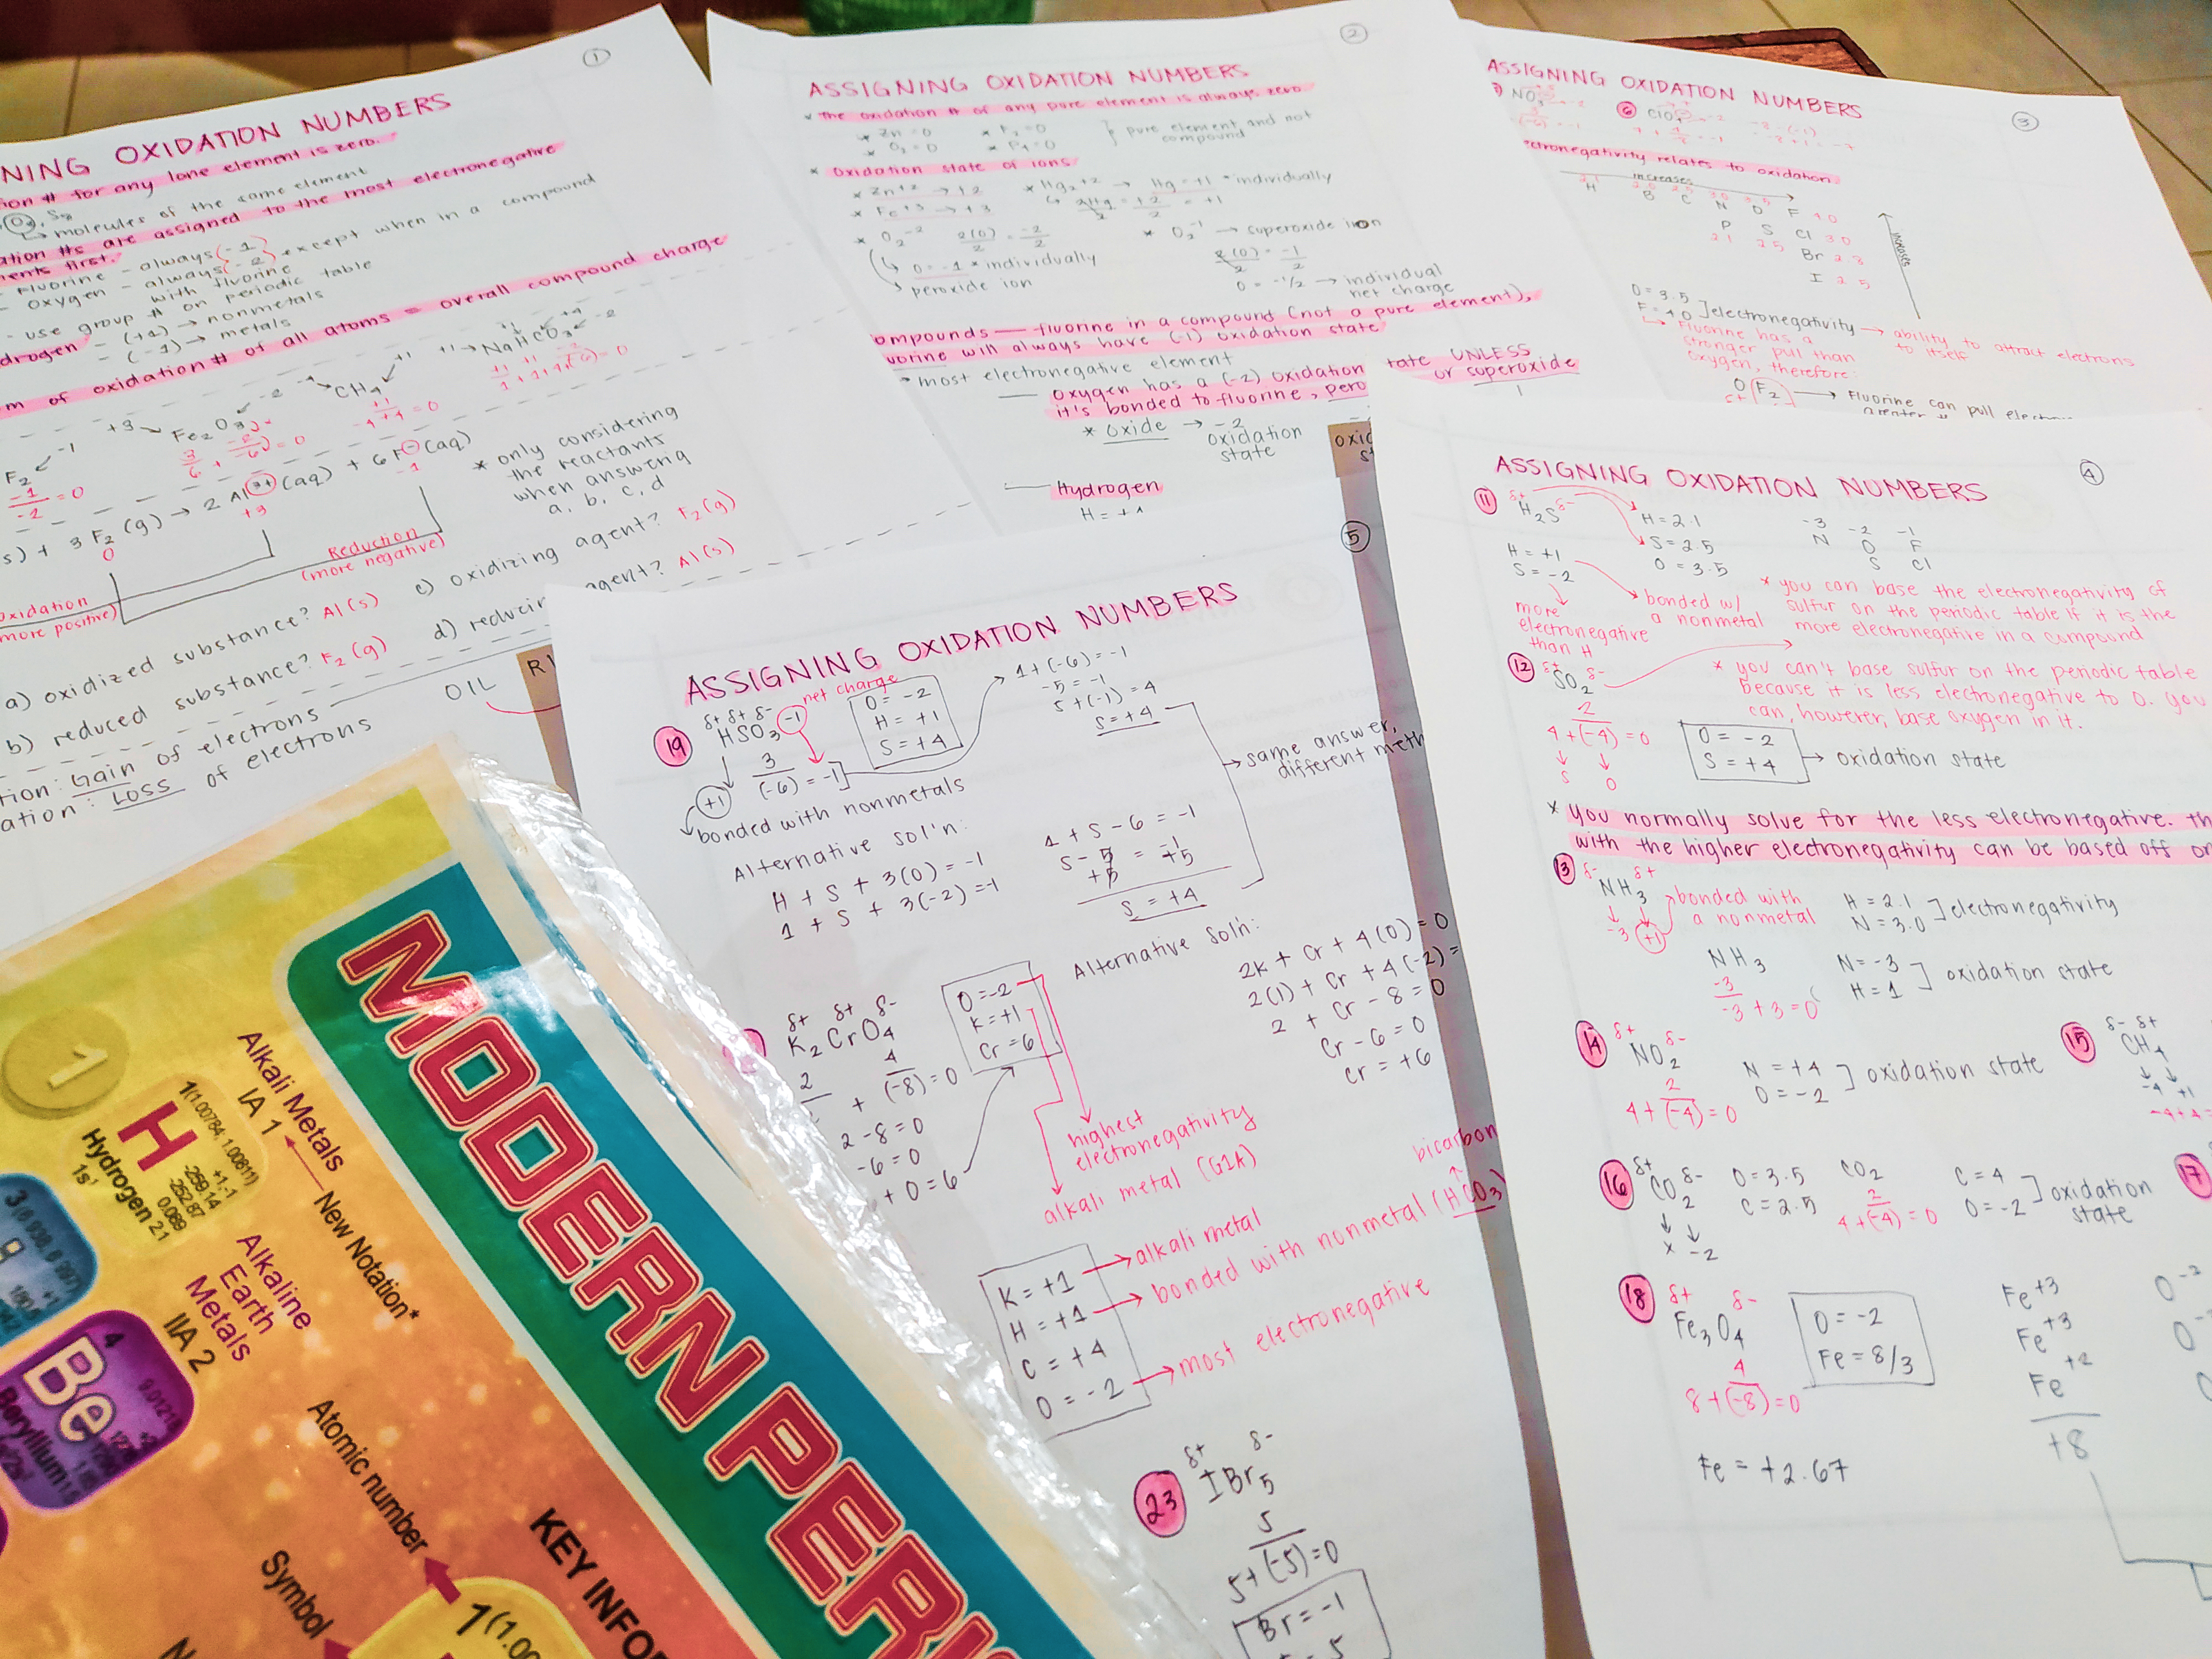 ①
NING OXIDATION NUMBERS
ion # for any lone element is zero.
O₃, S₈
↳ molecules of the same element
ation #s are assigned to the most electronegative
ments first.
Fluorine - always (-1)
oxygen - always (-2) } except when in a compound
with fluorine
- use group # on periodic table
drogen - (+1) → nonmetals
- (-1) → metals
m of oxidation # of all atoms = overall compound charge
F₂ -1
-1/-2 = 0
+3 Fe₂O₃ -2
CH₄ +1
+1 → NaHCO₃ -2
s) + 3 F₂ (g) → 2 Al³⁺ (aq) + 6F⁻ (aq)
0 +3 -1
Reduction
(more negative)
oxidation
more positive)
* only considering
the reactants
when answering
a, b, c, d
a) oxidized substance? Al (s)
b) reduced substance? F₂ (g)
c) oxidizing agent? F₂ (g)
d) reducin agent? Al (s)
tion: Gain of electrons
ation: LOSS of electrons
OIL RI
②
ASSIGNING OXIDATION NUMBERS
* The oxidation # of any pure element is always zero
* Zn = 0
* O₂ = 0
} pure element and not
compound
* Oxidation state of ions
* Zn⁺² → +2
* Fe⁺³ → +3
* Hg₂⁺² → Hg = +1 * individually
2Hg/2 = +2/2 = +1
* O₂⁻² 2(O)/2 = -2/2
O = -1 * individually
peroxide ion
* O₂⁻¹ → superoxide ion
2(O)/2 = -1/2
O = -1/2 → individual
net charge
ompounds — fluorine in a compound (not a pure element),
uorine will always have (-1) oxidation state
* most electronegative element
— Oxygen has a (-2) oxidation tate UNLESS
it's bonded to fluorine, pero or superoxide
* Oxide → -2
oxidation
state
— Hydrogen
H = +1
③
ASSIGNING OXIDATION NUMBERS
ectronegativity relates to oxidation
increases
H B C N O F 4.0
P S Cl 3.0
2.1 2.5
Br 2.8
I 2.5
increases
O = 3.5
F = 4.0 ] electronegativity → ability to attract electrons
to itself
↳ Fluorine has a
stronger pull than
oxygen, therefore:
O(F₂) → Fluorine can pull
④
ASSIGNING OXIDATION NUMBERS
⑪ δ+ δ-
H₂S
H = 2.1
S = 2.5
O = 3.5
-3 -2 -1
N O F
S Cl
H = +1
S = -2
bonded w/
a nonmetal
more
electronegative
than H
* you can base the electronegativity of
sulfur on the periodic table if it is the
more electronegative in a compound
⑫ δ+ δ-
SO₂
2
4 + (-4) = 0
S O
O = -2
S = +4 → oxidation state
* you can't base sulfur on the periodic table
because it is less electronegative to O. you
can, however, base oxygen in it.
* You normally solve for the less electronegative. Th
with the higher electronegativity can be based off on
⑬ δ- δ+
NH₃
-3 +1
bonded with
a nonmetal
H = 2.1
N = 3.0 ] electronegativity
NH₃
-3
-3 + 3 = 0
N = -3
H = 1 ] oxidation state
⑭ δ+ δ-
NO₂
2
4 + (-4) = 0
N = +4
O = -2 ] oxidation state
⑮ δ- δ+
CH₄
-4 +1
⑯ δ+ δ-
CO₂
x -2
O = 3.5
C = 2.5
CO₂
2
4 + (-4) = 0
C = 4
O = -2 ] oxidation
state
⑰
⑱ δ+ δ-
Fe₃O₄
4
8 + (-8) = 0
O = -2
Fe = 8/3
Fe = +2.67
Fe⁺³
Fe⁺³
Fe⁺²
+8
O⁻²
⑤
ASSIGNING OXIDATION NUMBERS
⑲ δ+ δ+ δ-
HSO₃ -1
net charge
3
(-6) = -1
+1
bonded with nonmetals
O = -2
H = +1
S = +4
1 + (-6) = -1
-5 = -1
5 + (-1) = 4
S = +4
same answer,
different meth
Alternative sol'n:
H + S + 3(O) = -1
1 + S + 3(-2) = -1
1 + S - 6 = -1
S - 5 = -1
+5 +5
S = +4
δ+ δ+ δ-
K₂CrO₄
2 4
+ (-8) = 0
2 - 8 = 0
-6 = 0
+ 0 = 6
O = -2
K = +1
Cr = 6
highest
electronegativity
alkali metal (G1A)
Alternative Sol'n:
2K + Cr + 4(O) = 0
2(1) + Cr + 4(-2) =
2 + Cr - 8 = 0
Cr - 6 = 0
Cr = +6
K = +1 → alkali metal
H = +1 → bonded with nonmetal (HCO₃)
bicarbon
C = +4
O = -2 → most electronegative
㉓ δ+ δ-
IBr₅
5
5 + (-5) = 0
Br = -1
MODERN PERI
1
Alkali Metals
IA 1
New Notation*
1(1.00784; 1.00811)
H
+1,-1
-259.14
-252.87
0.089
2.1
Hydrogen
1s¹
Alkaline
Earth
Metals
IIA 2
3
4
Be
Beryllium
Atomic number
Symbol
KEY INFOR
1(1.00